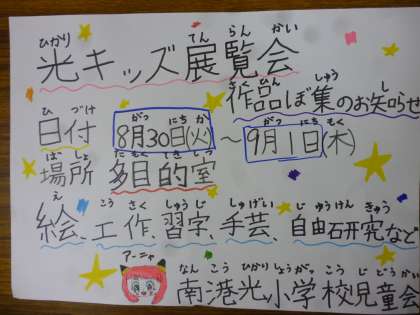 ひかり てん らん かい
光キッズ展覧会
さく ひん ぼ しゅう し
作品ぼ集のお知らせ
ひ づけ がつ にち か がつ にち もく
日付 8月30日(火)〜9月1日(木)
ば しょ た もく てき しつ
場所 多目的室
え こう さく しゅう じ しゅ げい じ ゆう けん きゅう
絵、工作、習字、手芸、自由研究など
アーニャ
なん こう ひかり しょう がっ こう じ どう かい
南港光小学校児童会